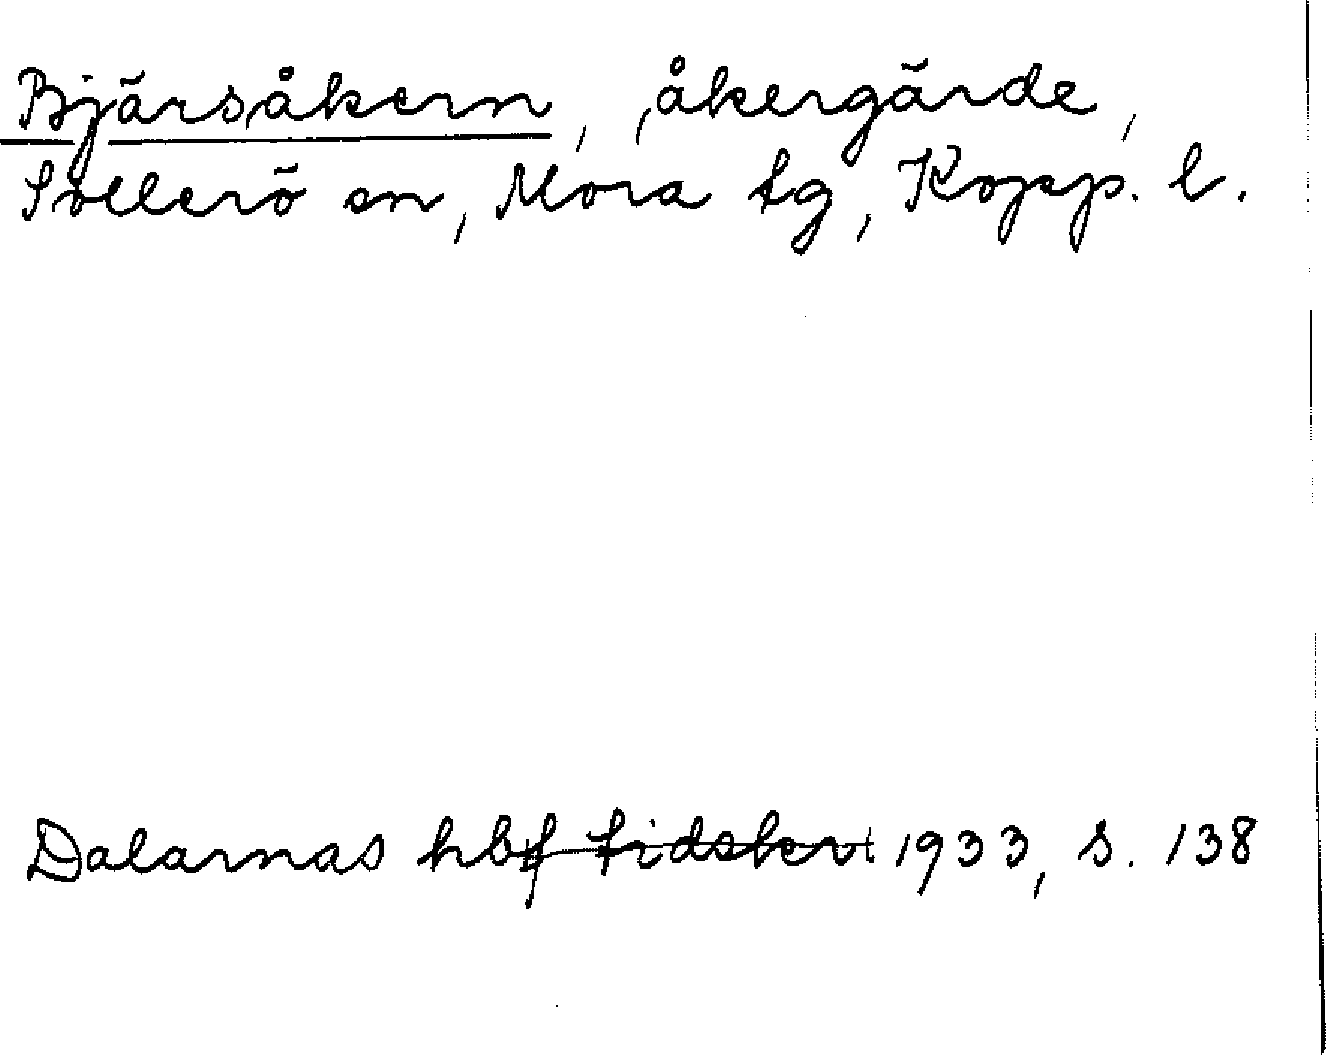 Bjärsåkern, åkergärde,
Sollerö sn, Mora tg, Kopp. l.
Dalarnas hbf tidskr. 1933, s. 138